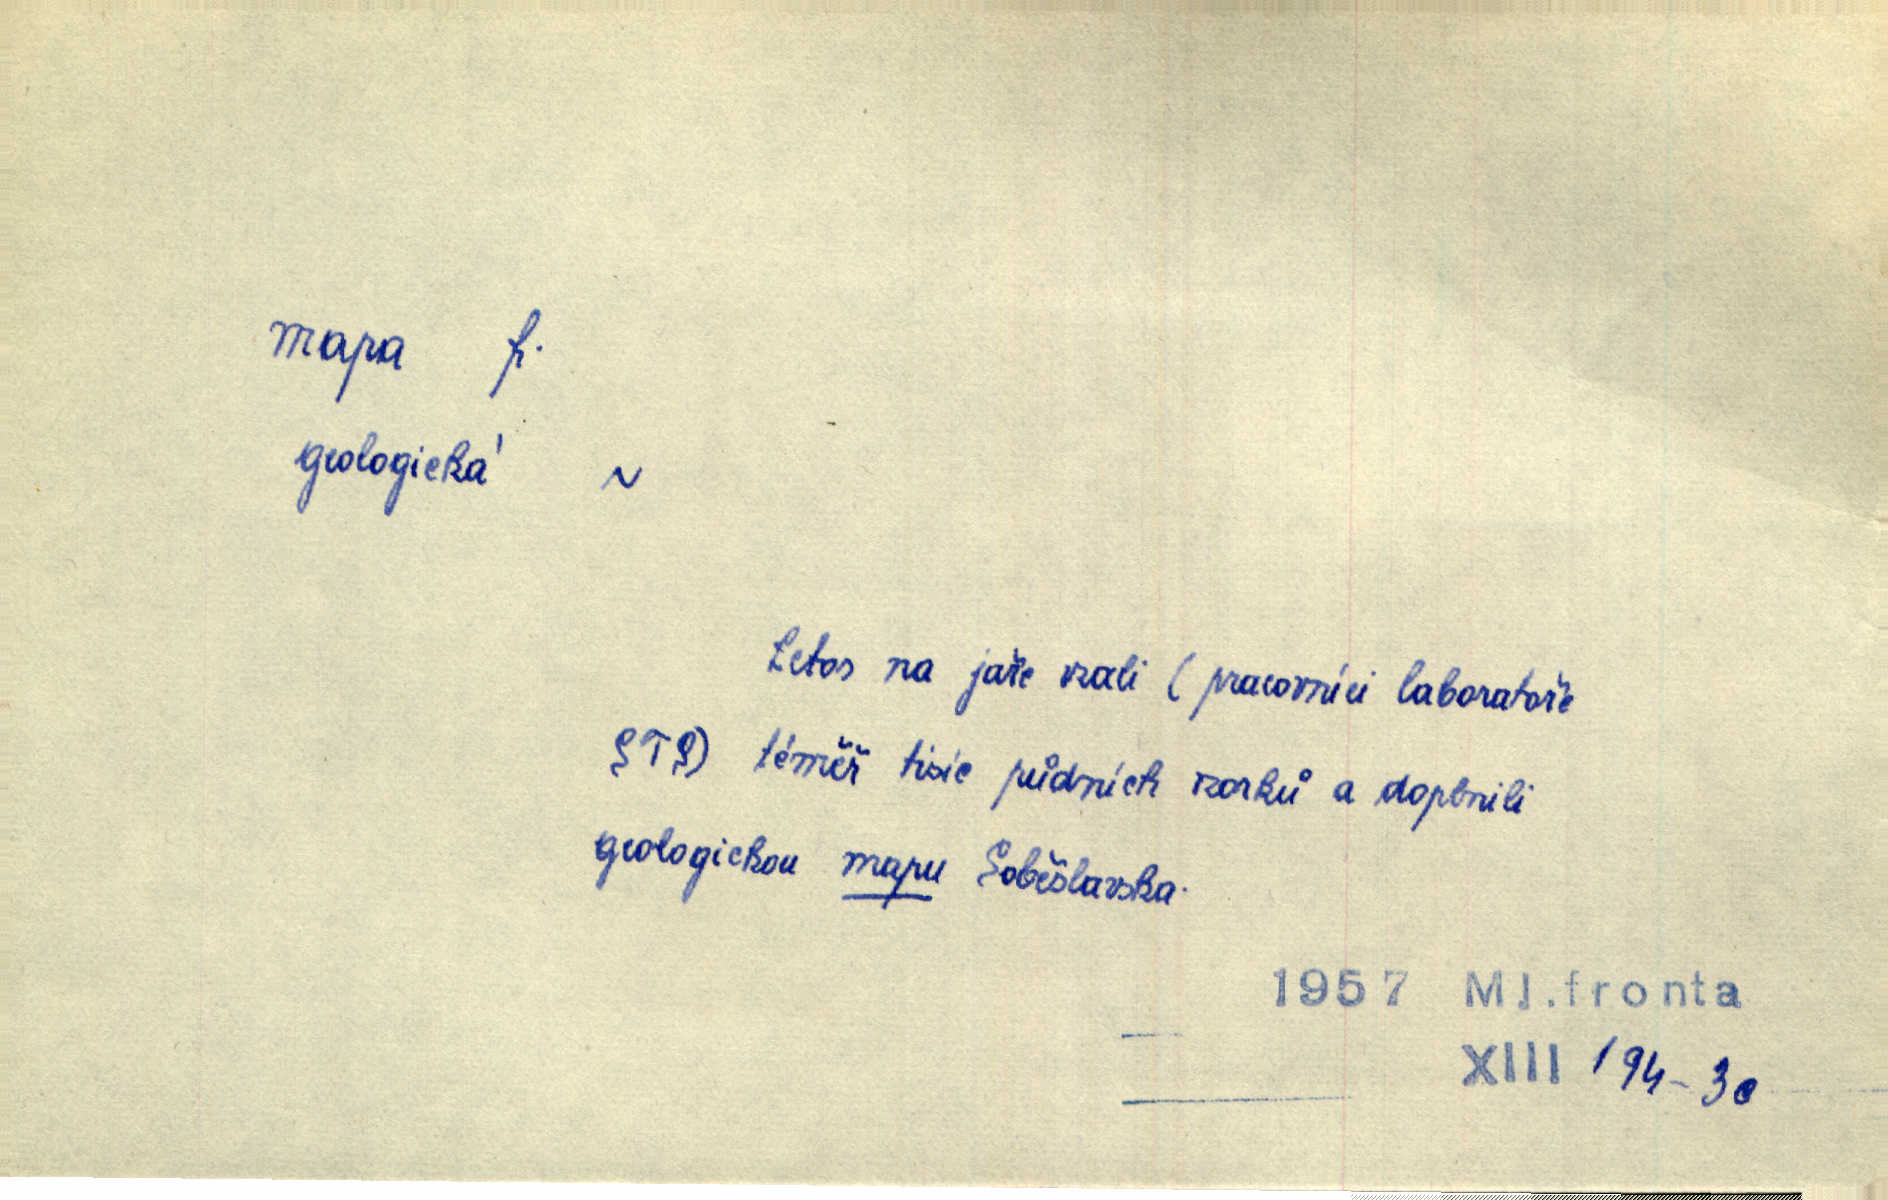 mapa f.
geologická ~
Letos na jaře vzali (pracovníci laboratoře
STS) téměř tisíc půdních vzorků a doplnili
geologickou mapu Soběslavska.
1957 Ml.fronta
XIII 194-3c